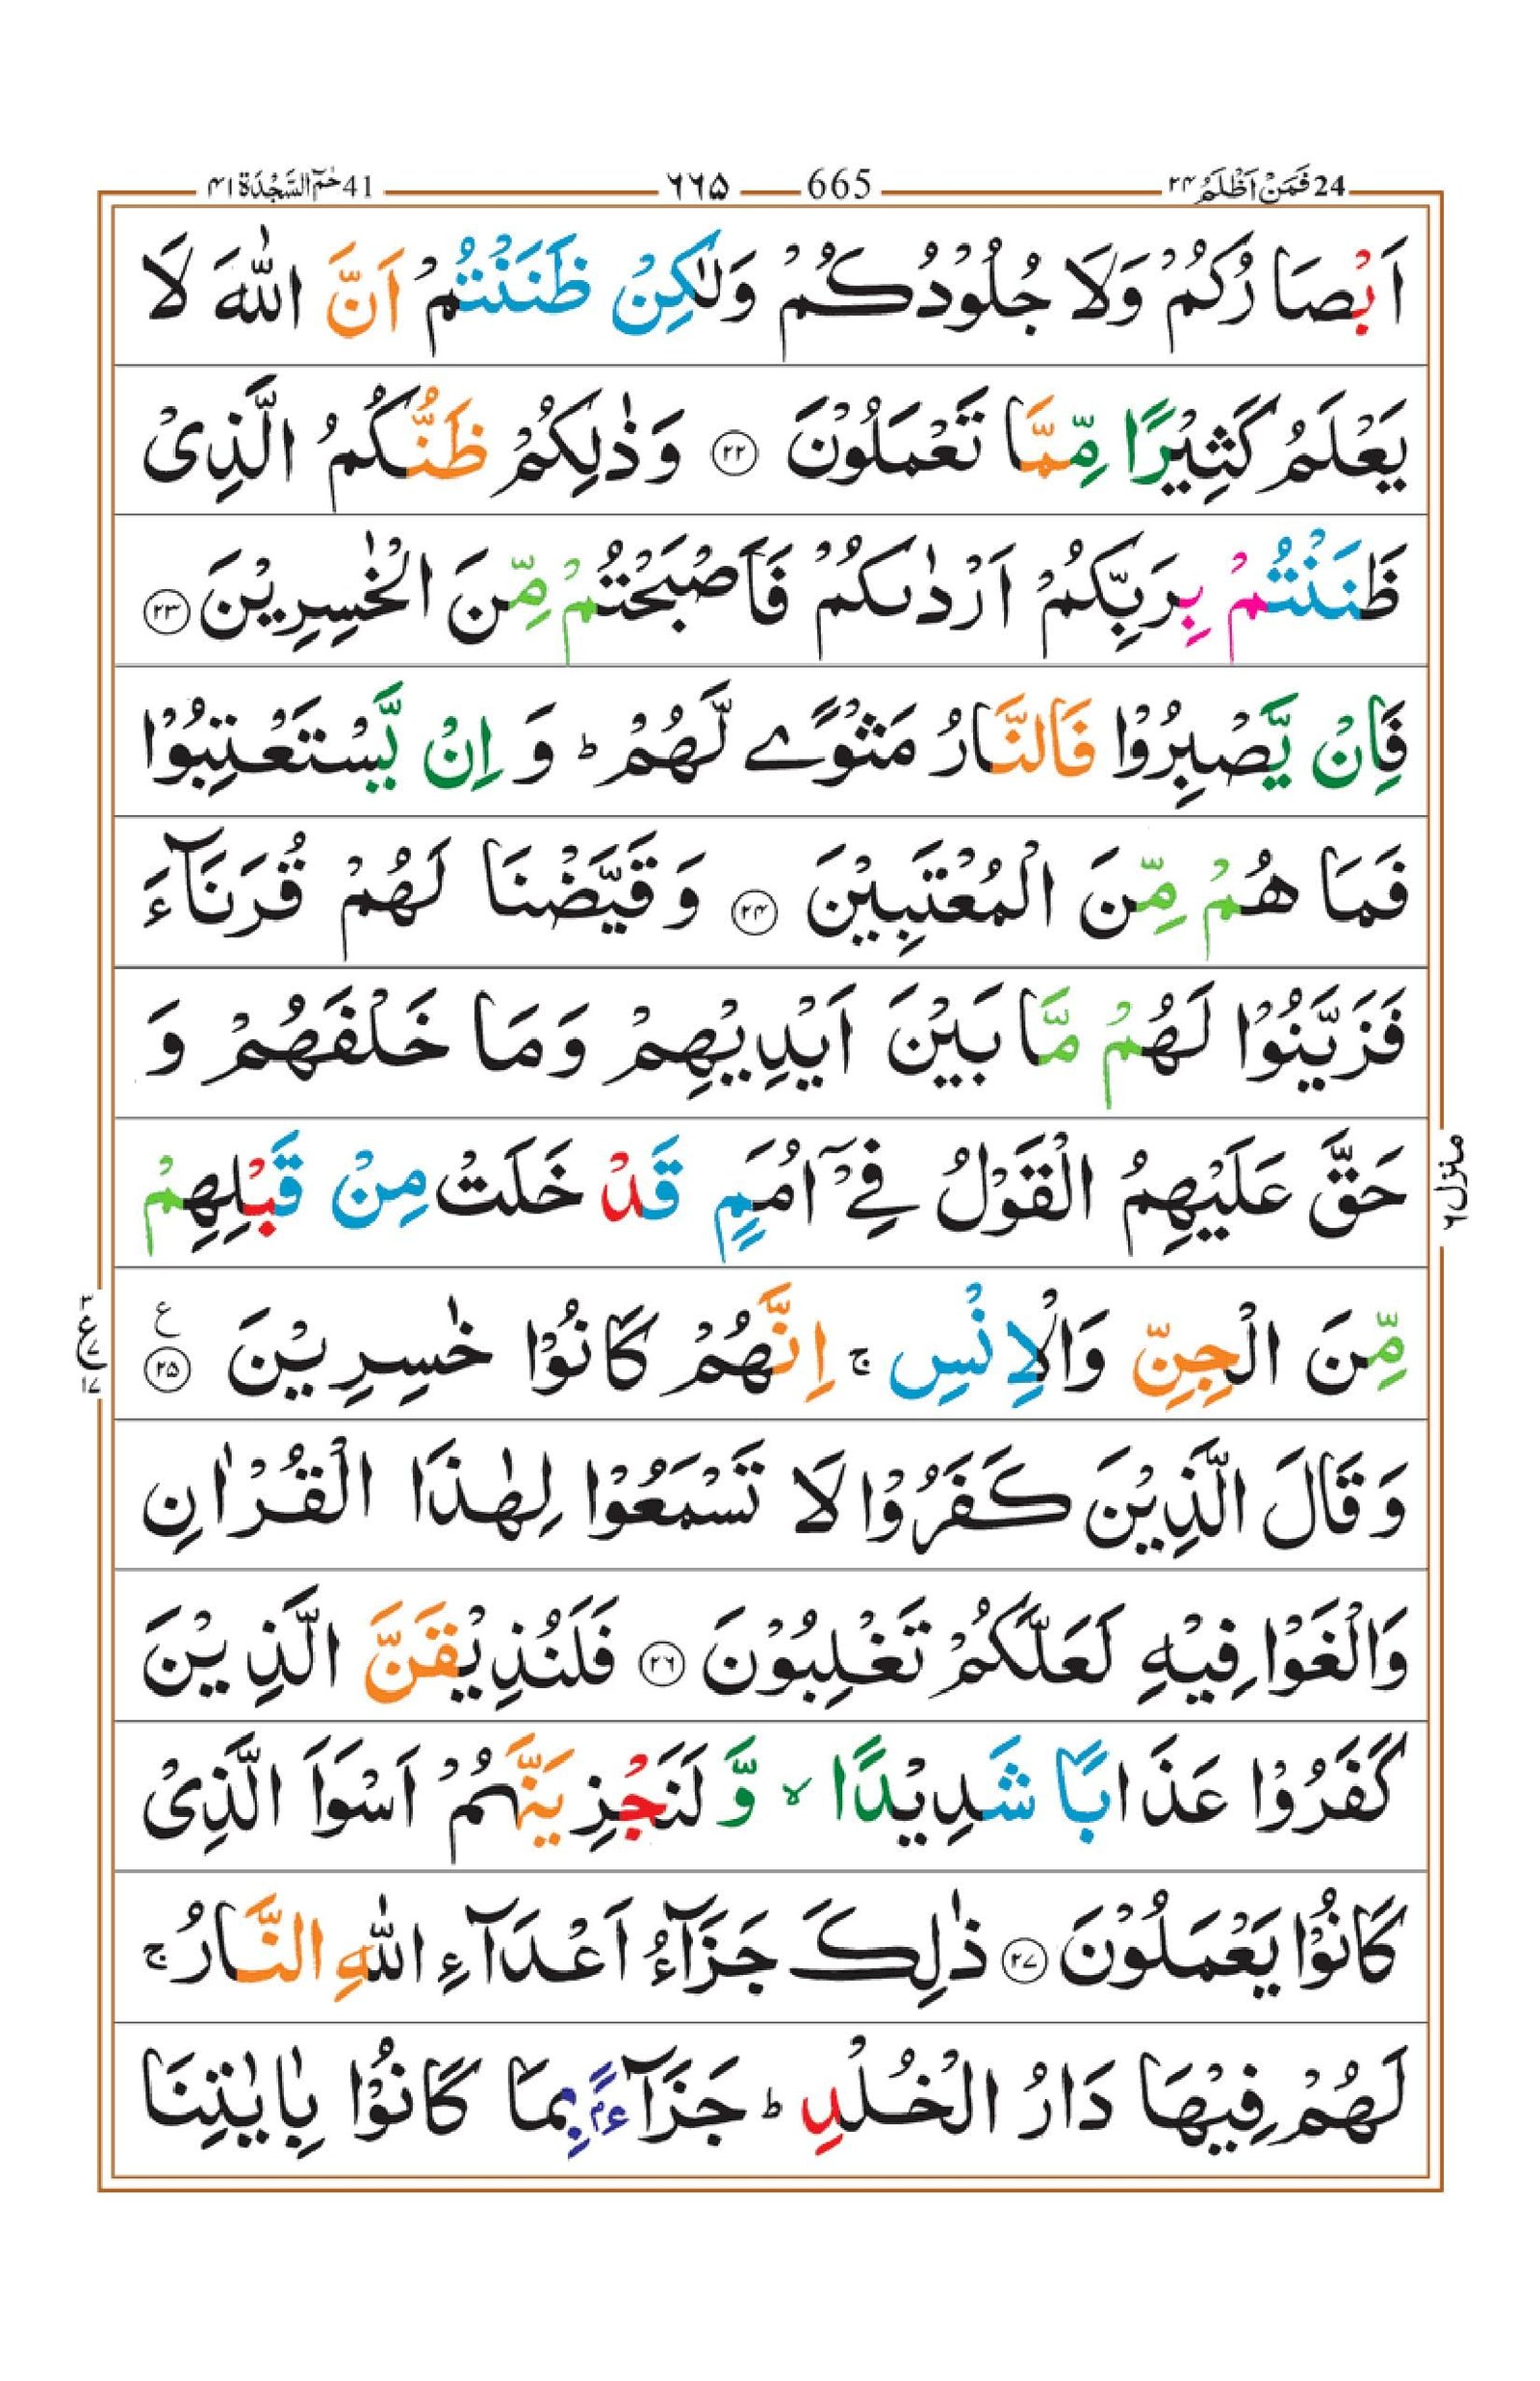 24 فَمَنْ اَظْلَمُ ۲۴ 665 ۶۶۵ 41 حٰمٓ السَّجْدَة ۴۱
اَبْصَارُكُمْ وَلَا جُلُوْدُكُمْ وَلٰكِنْ ظَنَنْتُمْ اَنَّ اللّٰهَ لَا
يَعْلَمُ كَثِيْرًا مِّمَّا تَعْمَلُوْنَ ۲۲ وَذٰلِكُمْ ظَنُّكُمُ الَّذِىْ
ظَنَنْتُمْ بِرَبِّكُمْ اَرْدٰىكُمْ فَاَصْبَحْتُمْ مِّنَ الْخٰسِرِيْنَ ۲۳
فَاِنْ يَّصْبِرُوْا فَالنَّارُ مَثْوًے لَّهُمْ ؕ وَ اِنْ يَّسْتَعْتِبُوْا
فَمَا هُمْ مِّنَ الْمُعْتَبِيْنَ ۲۴ وَقَيَّضْنَا لَهُمْ قُرَنَآءَ
فَزَيَّنُوْا لَهُمْ مَّا بَيْنَ اَيْدِيْهِمْ وَمَا خَلْفَهُمْ وَ
حَقَّ عَلَيْهِمُ الْقَوْلُ فِىْۤ اُمَمٍ قَدْ خَلَتْ مِنْ قَبْلِهِمْ
مِّنَ الْجِنِّ وَالْاِنْسِ ۚ اِنَّهُمْ كَانُوْا خٰسِرِيْنَ ۲۵ ع
وَ قَالَ الَّذِيْنَ كَفَرُوْا لَا تَسْمَعُوْا لِهٰذَا الْقُرْاٰنِ
وَالْغَوْا فِيْهِ لَعَلَّكُمْ تَغْلِبُوْنَ ۲۶ فَلَنُذِيْقَنَّ الَّذِيْنَ
كَفَرُوْا عَذَابًا شَدِيْدًا ۙ وَّ لَنَجْزِيَنَّهُمْ اَسْوَاَ الَّذِىْ
كَانُوْا يَعْمَلُوْنَ ۲۷ ذٰلِكَ جَزَآءُ اَعْدَآءِ اللّٰهِ النَّارُ ۚ
لَهُمْ فِيْهَا دَارُ الْخُلْدِ ؕ جَزَآءًۢ بِمَا كَانُوْا بِاٰيٰتِنَا
منزل ۶
۳
ع ۷
۱۷